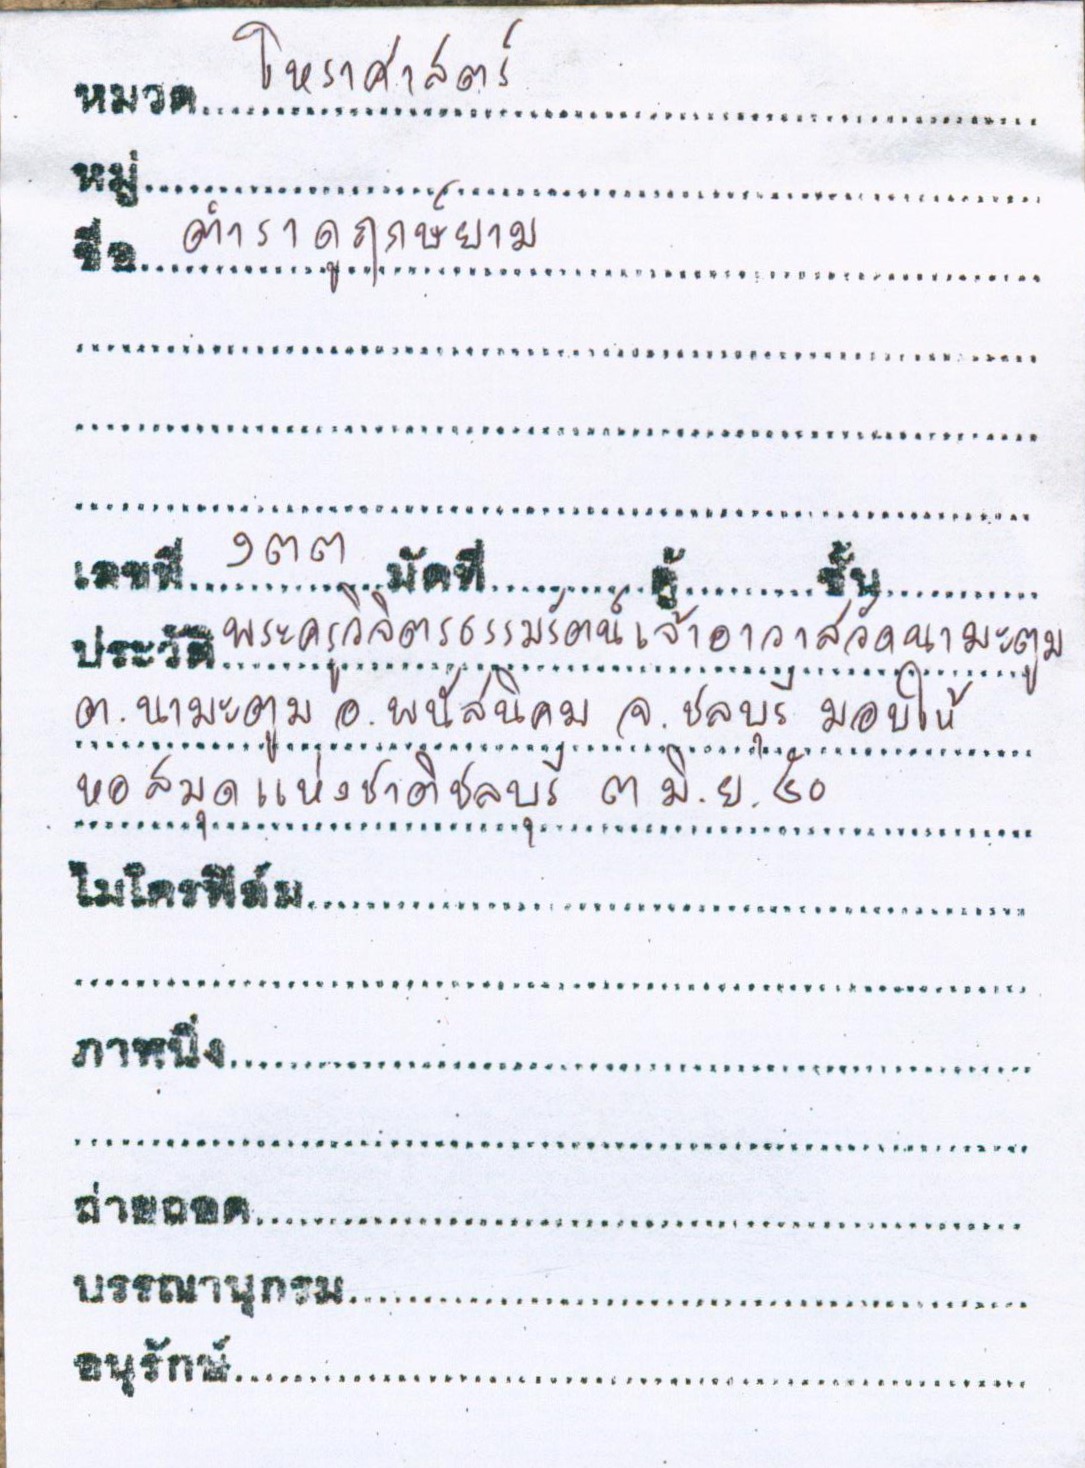 หมวด โหราศาสตร์
หมู่
ชื่อ ตำราดูฤกษ์ยาม
เลขที่ ๑๓๓ มัดที่ ตู้ ชั้น
ประวัติ พระครูวิจิตรธรรมรัตน์เจ้าอาวาสวัดนามะตูม
ต.นามะตูม อ.พนัสนิคม จ.ชลบุรี มอบให้
หอสมุดแห่งชาติชลบุรี ๓ มิ.ย.๔๐
ไมโครฟิล์ม
ภาพนิ่ง
ถ่ายถอด
บรรณานุกรม
อนุรักษ์